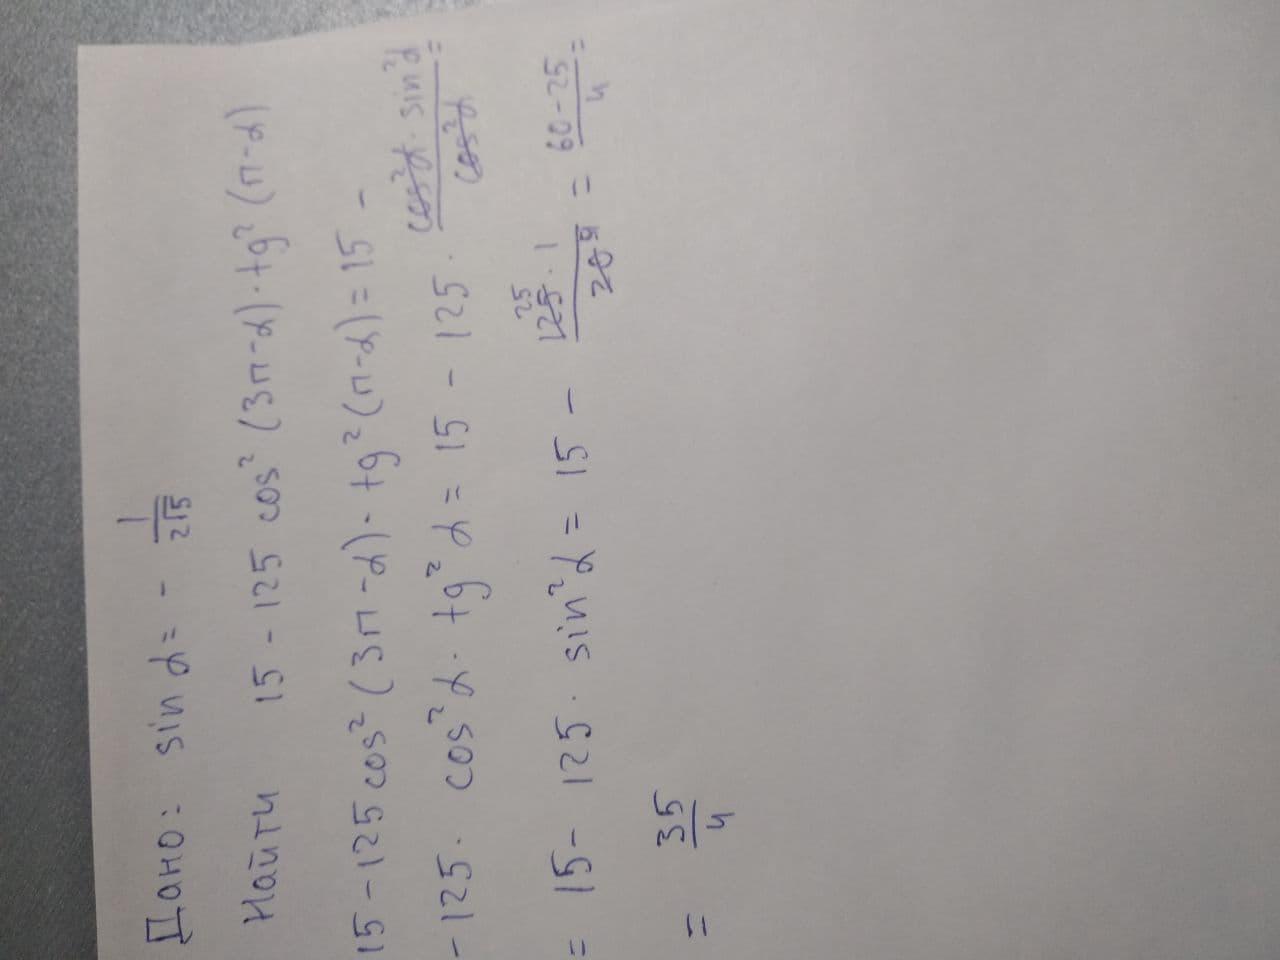 Дано: sin α = - 1/(2√5)
Найти 15 - 125 cos² (3π-α) · tg² (π-α)
15 - 125 cos² (3π - α) · tg² (π-α) = 15 -
- 125 · cos² α · tg² α = 15 - 125 · (cos² α · sin² α)/(cos² α) =
= 15 - 125 · sin² α = 15 - (125 25 · 1)/(20 4) = (60-25)/4 =
= 35/4